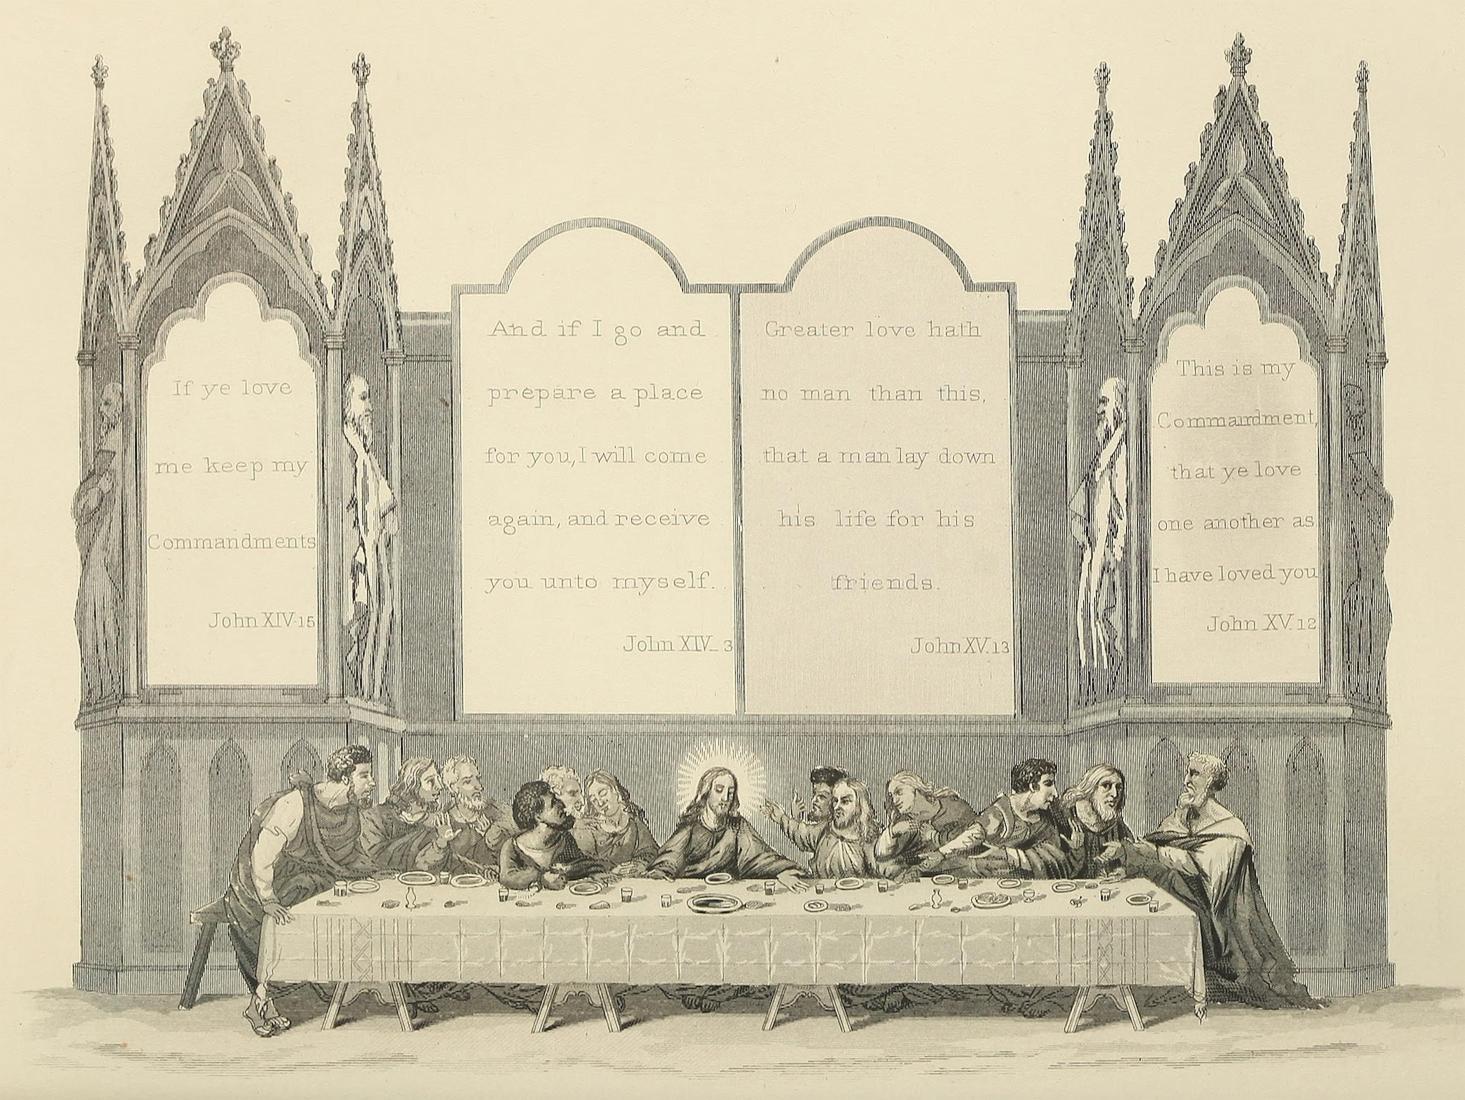 If ye love
me keep my
Commandments
John XIV.15
And if I go and
prepare a place
for you, I will come
again, and receive
you unto myself.
John XIV_3
Greater love hath
no man than this,
that a man lay down
his life for his
friends.
John XV.13
This is my
Commandment,
that ye love
one another as
I have loved you
John XV.12